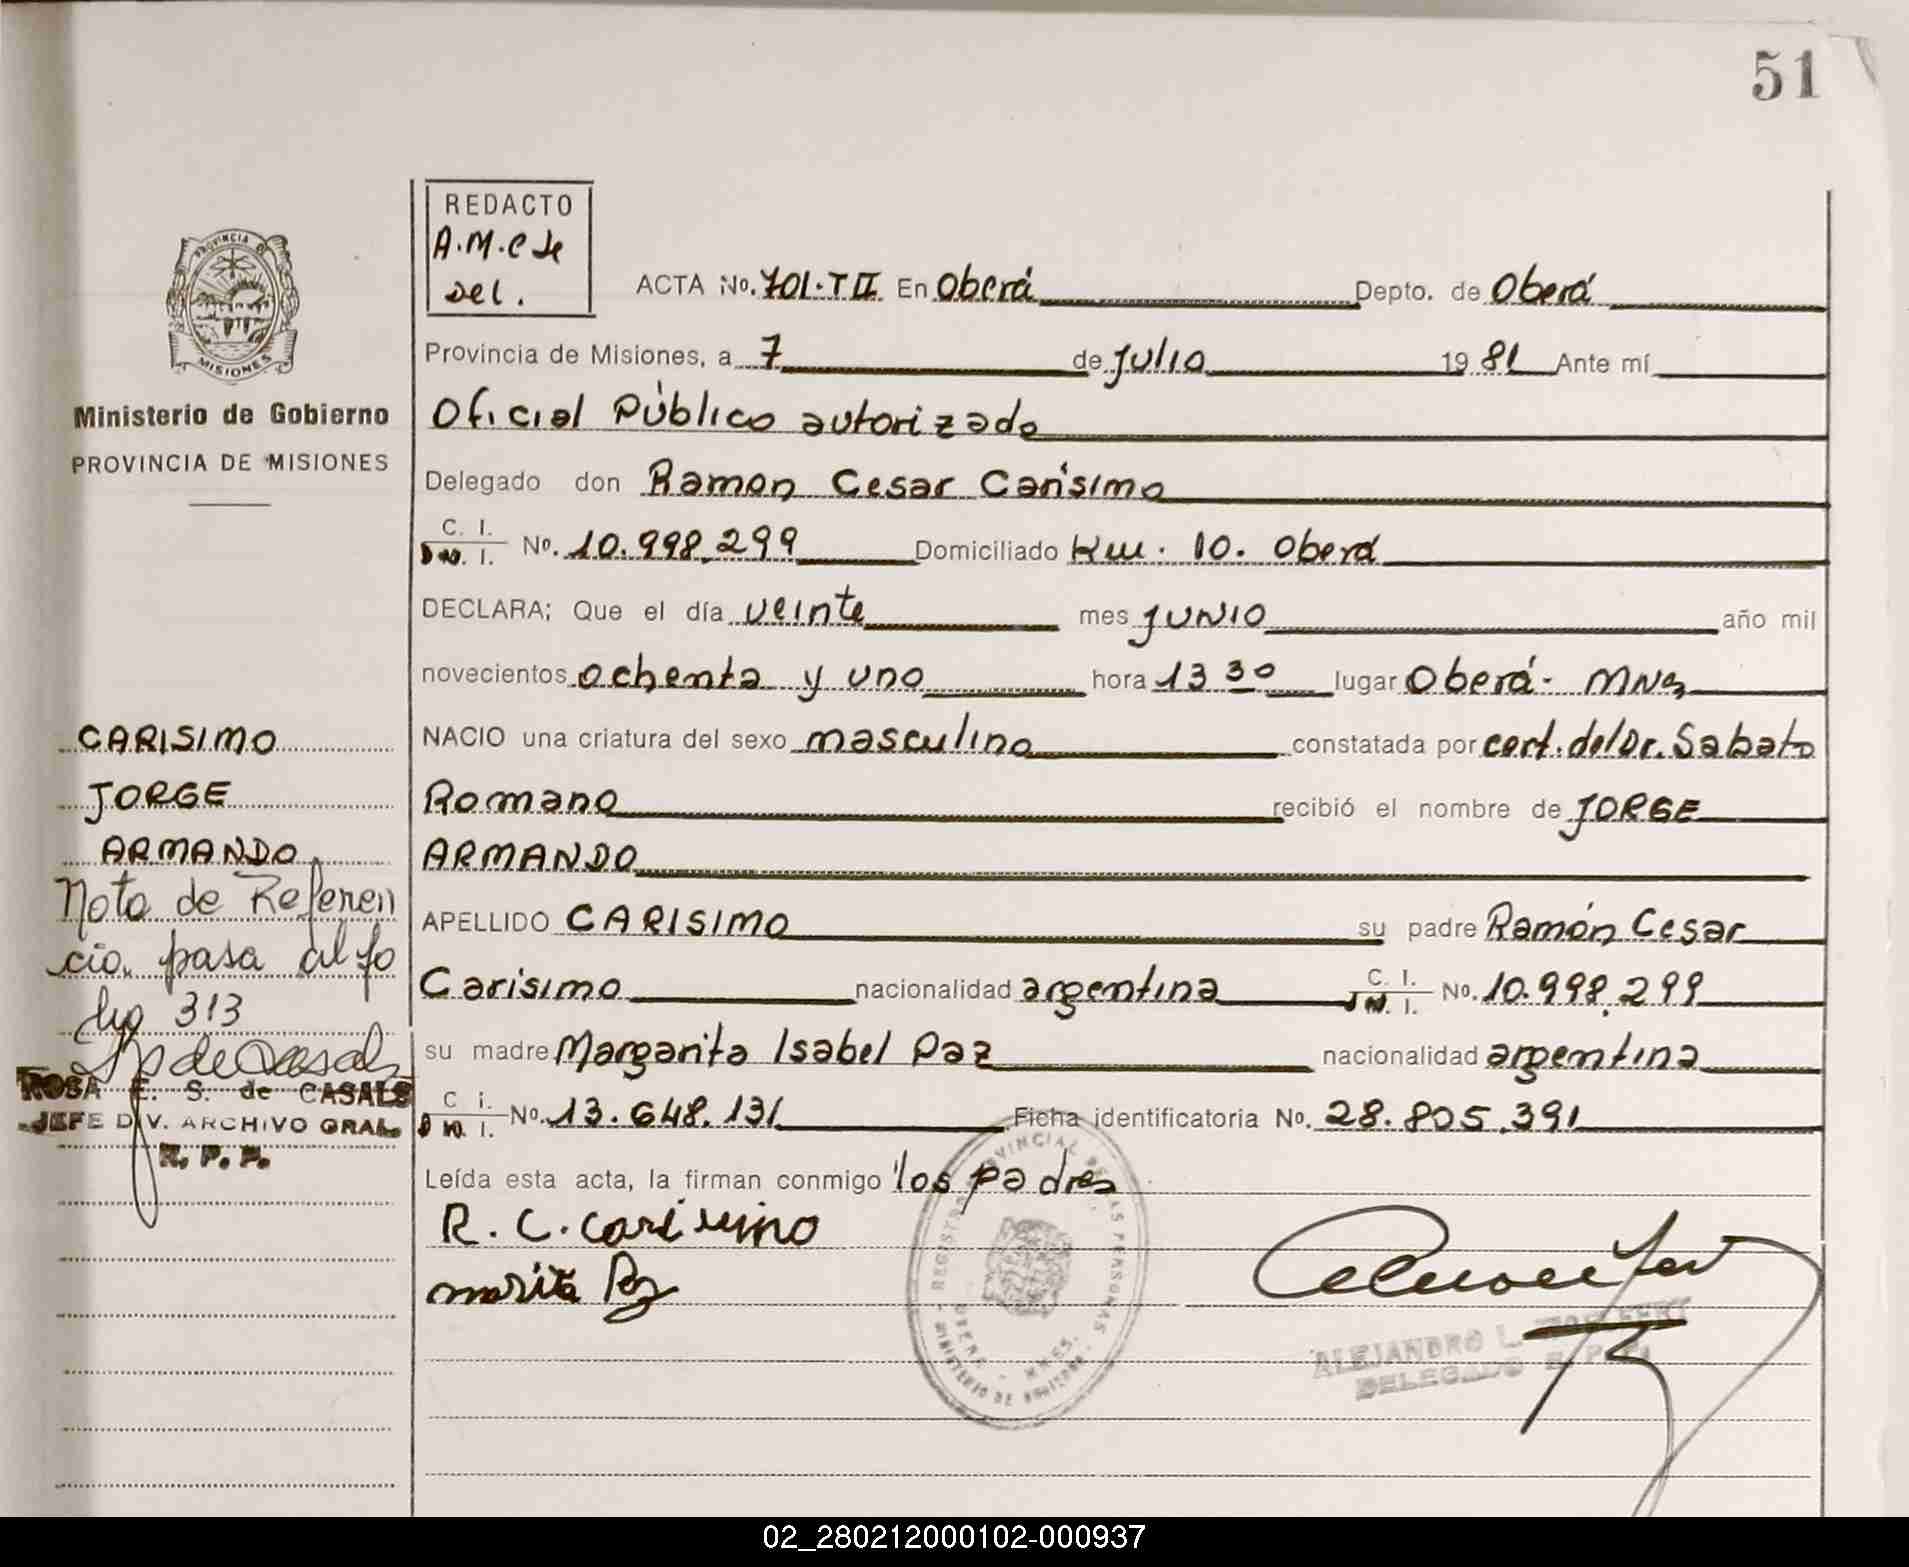 51
PROVINCIA DE
MISIONES
Ministerio de Gobierno
PROVINCIA DE MISIONES
REDACTO
A.M.C de
Del.
ACTA No. 701-T II En Oberá Depto. de Oberá
Provincia de Misiones, a 7 de julio 1981 Ante mí
Oficial Público autorizado
Delegado don Ramon Cesar Carísimo
C. I.
D N. I. No. 10.998.299 Domiciliado Km. 10. Oberá
DECLARA; Que el día veinte mes JUNIO año mil
novecientos ochenta y uno hora 13 30 lugar Oberá- MNes
NACIO una criatura del sexo masculino constatada por cert. del Dr. Sabato
Romano recibió el nombre de JORGE
ARMANDO
APELLIDO CARISIMO su padre Ramón Cesar
Carisimo nacionalidad argentina C. I.
D N. I. No. 10.998.299
su madre Margarita Isabel Paz nacionalidad argentina
C I.
D N. I. No. 13.648.131 Ficha identificatoria No. 28.805.391
Leída esta acta, la firman conmigo los padres
R. C. Carisimo
marita Paz
CARISIMO
JORGE
ARMANDO
Nota de Referen
cia. pasa al fo
lio 313
de Casals
ROSA E. S. de CASALS
JEFE DIV. ARCHIVO GRAL.
R. P. P.
REGISTRO PROVINCIAL DE LAS PERSONAS
MINISTERIO DE GOBIERNO
ALEJANDRO L.
DELEGADO R. P. P.
02_280212000102-000937